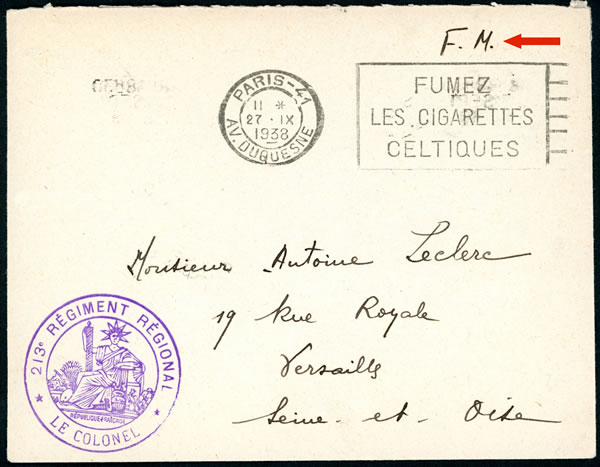 F. M.
PARIS-41
11 *
27 · IX
1938
AV. DUQUESNE
FUMEZ
LES CIGARETTES
CELTIQUES
Monsieur Antoine Leclerc
19 Rue Royale
Versailles
Seine-et-Oise
213e RÉGIMENT RÉGIONAL
RÉPUBLIQUE FRANÇAISE
* LE COLONEL *